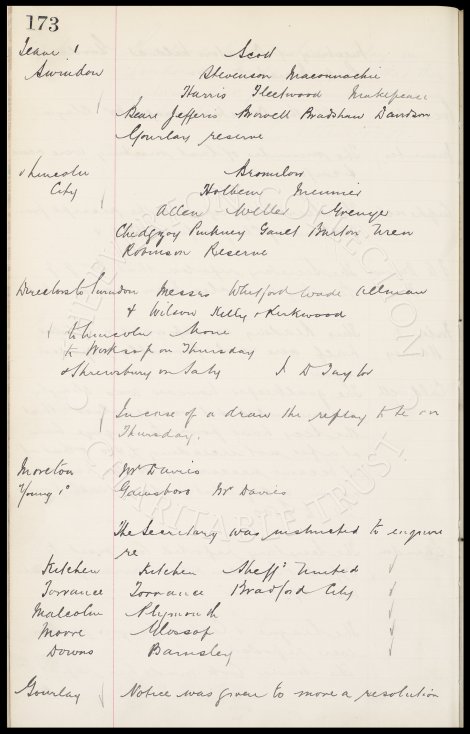 173
Team v Scott
Swindon Stevenson Maconnachie
Harris Fleetwood Makepeace
Beare Jefferis Browell Bradshaw Davidson
Gourlay reserve
v Lincoln Bromilow
City Holbem Meunier
Allen Weller Grenyer
Chedgzoy Pinkney Gault Burton Wren
Robinson Reserve
Directors to Swindon Messrs Whitford Wade Allman
& Wilson Kelly & Kirkwood
to Lincoln None
to Worksop on Thursday
& Shrewsbury on Saty J D Taylor
In case of a draw the replay to be on
Thursday.
Moreton Mr Davies
Young Gainsboro Mr Davies
The Secretary was instructed to enquire
re
Kitchen Kitchen Sheffd United
Torrance Torrance Bradford City
Malcolm Plymouth
Moore Glossop
Downs Barnsley
Gourlay Notice was given to move a resolution